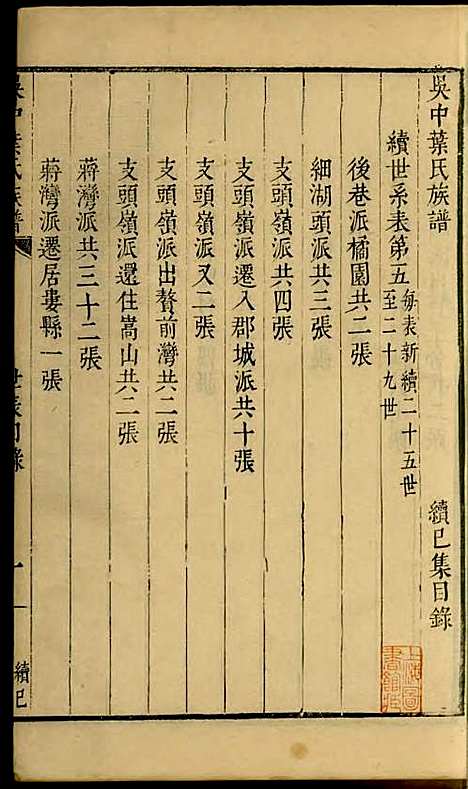 吳中葉氏族譜 續巳集目錄
續世系表第五 每表新續二十五世
至二十九世
後巷派橘園共二張
細湖頭派共三張
支頭嶺派共四張
支頭嶺派遷入郡城派共十張
支頭嶺派又二張
支頭嶺派出贅前灣共二張
支頭嶺派還住嵩山共二張
蔣灣派共三十二張
蔣灣派遷居婁縣一張
吳中葉氏族譜 世表目錄 一 續巳
上海圖書館藏